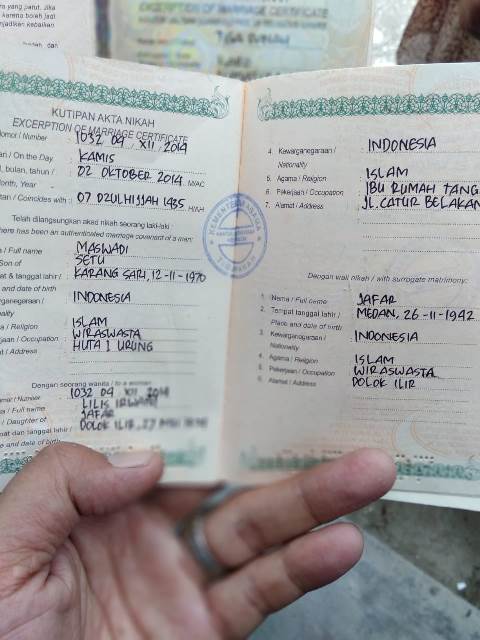 KUTIPAN AKTA NIKAH
EXCERPTION OF MARRIAGE CERTIFICATE
/ Number : 1032 09 XII 2014
/ On the Day : KAMIS
, bulan, tahun / 02 OKTOBER 2014 M/AC
Month, Year
/ Coincides with : 07 DZULHIJJAH 1435 H/AH
Telah dilangsungkan akad nikah seorang laki-laki
here has been an authenticated marriage covenant of a man:
/ Full name : MASWADI
Son of : SETU
& tanggal lahir / : KARANG SARI, 12-11-1970
and date of birth
/ INDONESIA
/ Religion : ISLAM
/ Occupation : WIRASWASTA
/ Address : HUTA I URUNG
Dengan seorang wanita / to a woman
/ Number : 1032 09 XII 2014
/ Full name : LILIS
/ Daughter of : JAFAR
dan tanggal lahir / DOLOK ILIR, 27
and date of birth
4. Kewarganegaraan / : INDONESIA
Nationality
5. Agama / Religion : ISLAM
6. Pekerjaan / Occupation : IBU RUMAH TANG
7. Alamat / Address : JL. CATUR BELAKAN
KEMENTERIAN AGAMA
Dengan wali nikah / with surrogate matrimony:
1. Nama / Full name : JAFAR
2. Tempat tanggal lahir / : MEDAN, 26-11-1942
Place and date of birth
3. Kewarganegaraan / : INDONESIA
Nationality
4. Agama / Religion : ISLAM
5. Pekerjaan / Occupation : WIRASWASTA
6. Alamat / Address : DOLOK ILIR